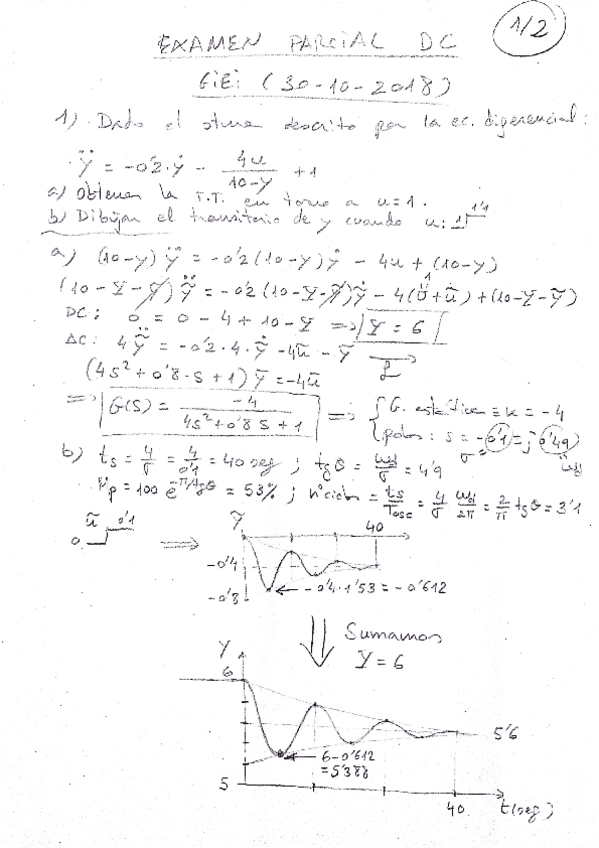 1/2
EXAMEN PARCIAL DC
GIEI (30-10-2018)
1) Dado el sistema descrito por la ec. diferencial:
ÿ = -0'2·ẏ - 4u/(10-y) + 1
a) Obtener la F.T. en torno a u=1.
b) Dibujar el transitorio de y cuando u: 1 1'1
a) (10-y) ÿ = -0'2(10-y)ẏ - 4u + (10-y)
(10-Y-ỹ) ỹ̈ = -0'2(10-Y-ỹ)ỹ̇ - 4(U+ũ) + (10-Y-ỹ)
1
DC: 0 = 0 - 4 + 10 - Y => Y = 6
ΔC: 4ỹ̈ = -0'2·4·ỹ̇ - 4ũ - ỹ
(4s²+0'8·s+1) ỹ = -4ũ
=> G(s) = -4/(4s²+0'8s+1) => { G. estática = K = -4
polos: s = -0'1 ± j 0'49
σ ωd
b) ts = 4/σ = 4/0'1 = 40 seg ; tgθ = ωd/σ = 4'9
Mp = 100 e^(-π/tgθ) = 53% ; nºciclos = ts/Tosc = 4/σ ωd/2π = 2/π tgθ = 3'1
ũ 0'1
0
=>
ỹ
40
-0'4
-0'4·1'53 = -0'612
-0'8
Sumamos
Y = 6
Y
6
5'6
6-0'612
=5'388
5
40
t(seg)